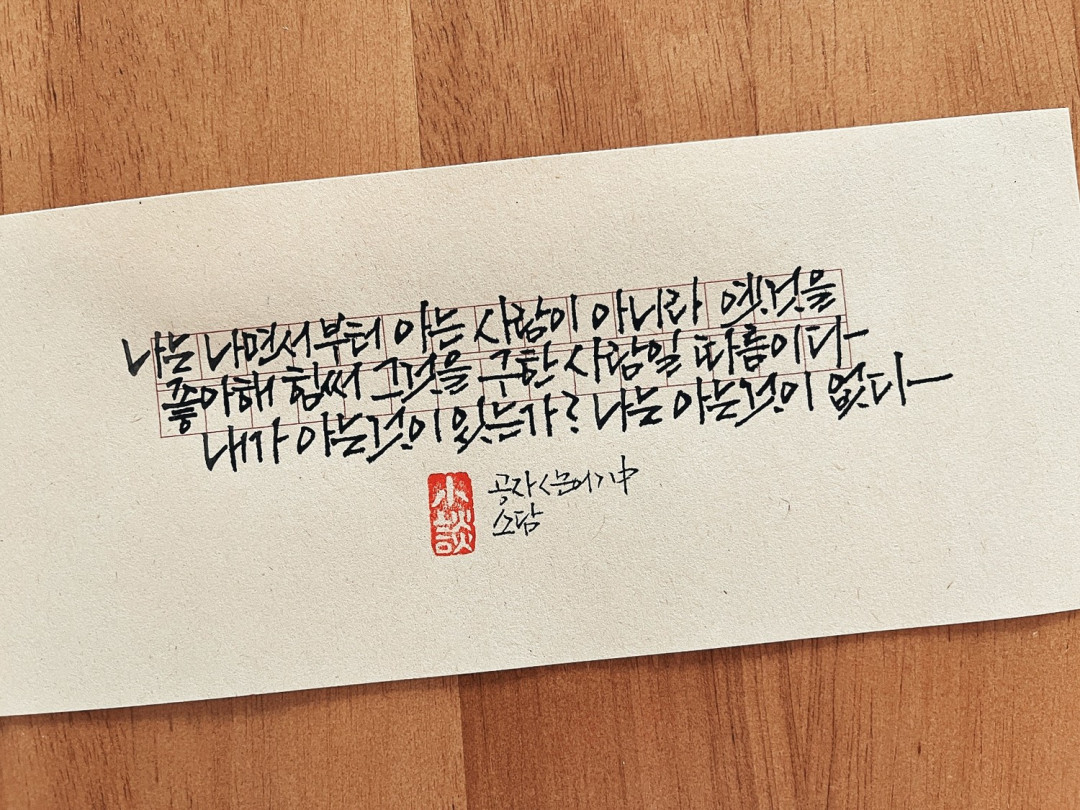 나는 나면서부터 아는 사람이 아니라 옛것을
좋아해 힘써 그것을 구한 사람일 따름이다
내가 아는것이 있는가? 나는 아는것이 없다
小談
공자<논어>中
소담